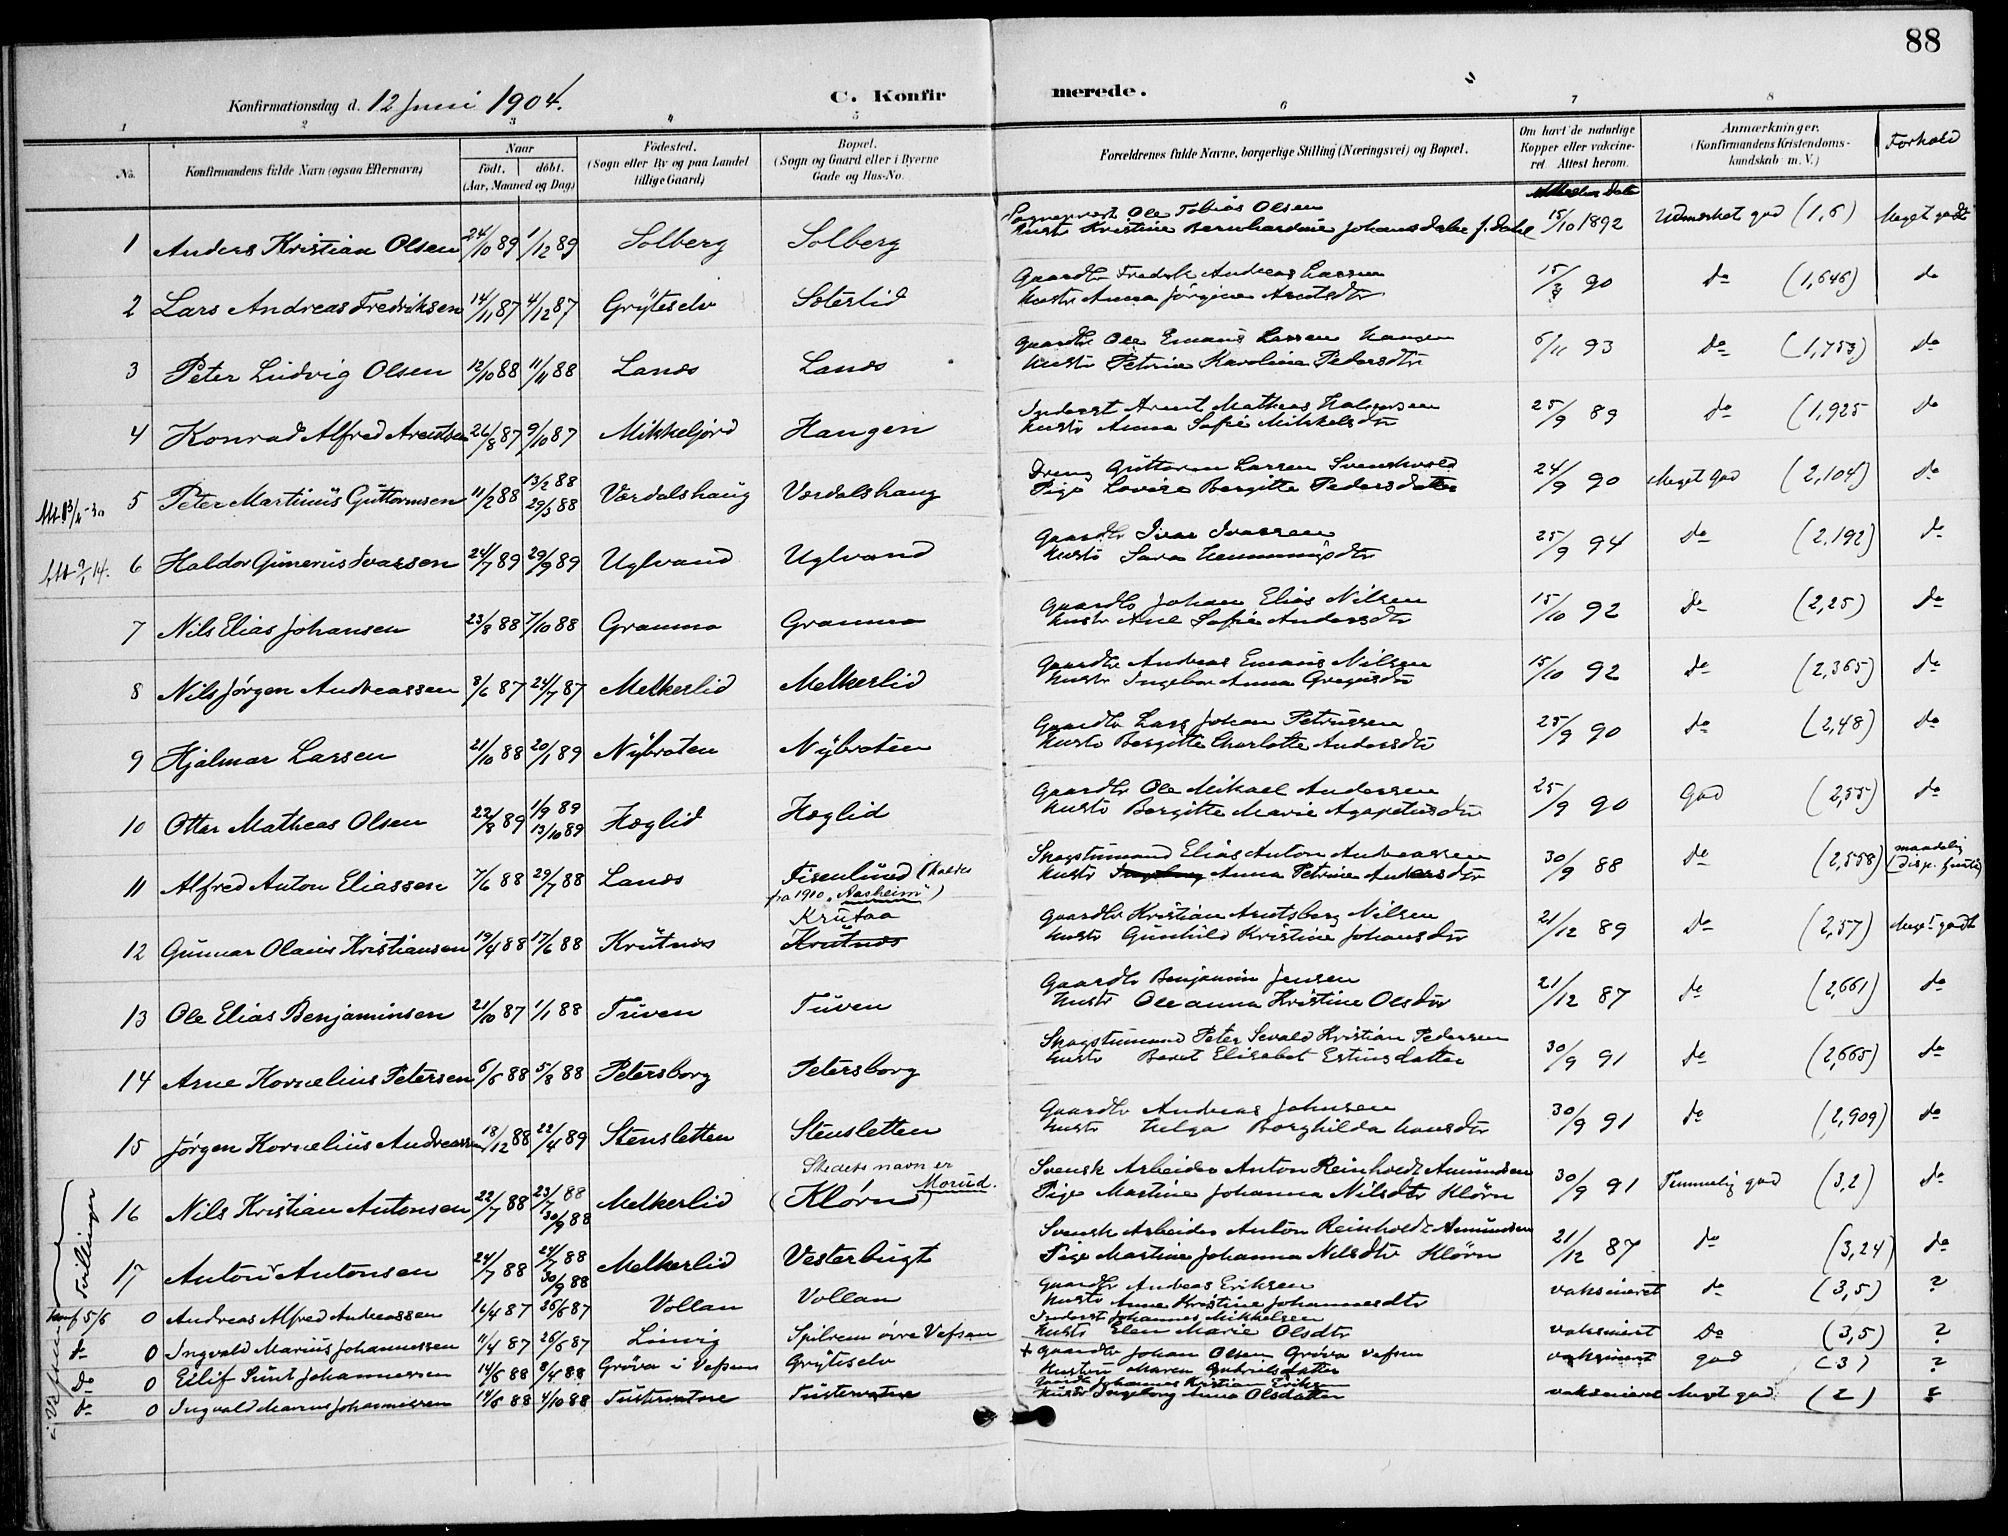 88
Konfirmationsdag d. 12 Juni 1904.
C. Konfirmerede.
1 2 3 4 5 6 7 8
No.
Konfirmandens fulde Navn (ogsaa Efternavn)
Naar
født. døbt.
(Aar, Maaned og Dag)
Fødested.
(Sogn eller By og paa Landet
tillige Gaard)
Bopæl.
(Sogn og Gaard eller i Byerne
Gade og Hus-No.
Forældrenes fulde Navne, borgerlige Stilling (Næringsvei) og Bopæl.
Om havt de naturlige
Kopper eller vakcine-
ret. Attest herom.
Anmærkninger.
(Konfirmandens Kristendoms-
kundskab m. V.)
Forhold
1 Anders Kristian Olsen 24/10 89 1/12 89 Solberg Solberg
Ole Tobias Olsen
Kristine Bernhardine Johansdatter f. Dahl 15/10 1892 Udmerket god (1,6) Meget godt
2 Lars Andreas Fredriksen 14/11 87 4/12 87 Gryteselv Soterlid
Gaardbr Fredrik Andreas Larsen
Hustr Anna Jørgine Arntsdtr 90 do (1,646) do
3 Peter Ludvig Olsen 12/10 88 11/11 88 Lands Lands
Gaardbr Ole Emaus Larsen Haugen
Hustr Petrine Karoline Pedersdtr 6/11 93 do (1,753) do
4 Konrad Alfred Arentsen 26/8 87 9/10 87 Mikkeljord Haugen
Inderst Arent Mathias Holgersen
Hustr Anna Sofie Mikkelsdtr 25/9 89 do (1,925 do
5 Peter Martinus Guttormsen 11/2 88 13/2 88 Vardalshaug Vardalshaug
29/5 88
Dreng Guttorm Larsen Svenskvold
Pige Lovise Bergitte Pedersdatter 24/9 90 Meget god (2,104) do
6 Haldor Gunerius Ivarsen 24/7 89 29/9 89 Uglvand Uglvand
Gaardbr Ivar Ivarsen
Hustr Sara Hemmingsdtr 25/9 94 do (2,192) do
7 Nils Elias Johansen 23/8 88 7/10 88 Granmo Granmo
Gaardbr Johan Elias Nilsen
Hustr Ane Sofie Andersdtr 15/10 92 do (2,25) do
8 Nils Jørgen Andreassen 8/6 87 24/7 87 Melkerlid Melkerlid
Gaardbr Andreas Emaus Nilsen
Hustr Ingebor Anna Gregusdtr 15/10 92 do (2,365) do
9 Hjalmar Larsen 21/10 88 20/1 89 Nybroten Nybroten
Gaardbr Lars Johan Petrussen
Hustr Bergitte Charlotte Andersdtr 25/9 90 do (2,48) do
10 Ottar Matheas Olsen 22/8 89 1/9 89 Høglid Høglid
13/10 89
Gaardbr Ole Mikael Andersen
Hustr Bergitte Marie Agapetusdtr 25/9 90 God (2,55) do
11 Alfred Anton Eliassen 7/6 88 29/7 88 Lands Fisenlund (kaldes
fra 1910 „Aasheim")
Skogstuemand Elias Anton Andreassen
Hustr Anna Petrine Andersdtr 30/9 88 do (2,558) maadelig
12 Gunnar Olaus Kristiansen 19/4 88 17/6 88 Krutnes Krutnes
Krutaa
Gaardbr Kristian Arntsberg Nilsen
Hustr Gunhild Kristine Johansdtr 21/12 89 do (2,57) Meget godt
13 Ole Elias Benjaminsen 21/10 87 1/1 88 Tuven Tuven
Gaardbr Benjamin Jensen
Hustr Oleanna Kristine Olsdtr 21/12 87 do (2,661) do
14 Arne Kornelius Petersen 6/6 88 5/8 88 Petersborg Petersborg
Skogstuemand Peter Sevald Kristian Pedersen
Hustr Beret Elisabet Estinsdatter 30/9 91 do (2,665) do
15 Jørgen Kornelius Andreassen 18/12 88 22/4 89 Stensletten Stensletten
Gaardbr Andreas Johnsen
Hustr Helga Borghilda Hansdtr 30/9 91 do (2,909) do
Tvillinger
16 Nils Kristian Antonsen 22/7 88 23/7 88 Melkerlid (Klørn)
30/9 88
Stedets navn er
Morud.
Svensk Arbeider Anton Reinholdt Amundsen
Pige Martine Johanna Nilsdtr Klørn 30/9 91 Temmelig god (3,2) do
17 Anton Antonsen 24/7 88 24/7 88 Melkerlid Vesterbugt
30/9 88
Svensk Arbeider Anton Reinholdt Amundsen
Pige Martine Johanna Nilsdtr Klørn 21/12 87 do (3,24) do
0 Andreas Alfred Andreassen 16/4 87 26/6 87 Vollan Vollan
Gaardbr Andreas Eriksen
Hustr Anne Kristine Johannesdtr vaksineret do (3,5) ?
do 0 Ingvald Marius Johannessen 11/4 87 26/6 87 Linvig Spilrem øvre Vefsen
Inderst Johannes Mikkelsen
Hustr Elen Marie Olsdtr vaksinert Do (3,5) ?
Do 0 Eilif Sunt Johannessen 14/6 88 8/4 88 Grøva i Vefsen Grytiselv
+ Gaardbr Johan Olsen Grøva Vefsen
Hustru Maren Gabrielsdatter vaksinert god (3) ?
do 0 Ingvald Marius Johannessen 14/6 88 4/10 88 Tustervatne Tustervatne
Gaardbr Johannes Kristian Eriksen
Hustr Ingeborg Anna Olsdatter vaksineret Meget god (2)